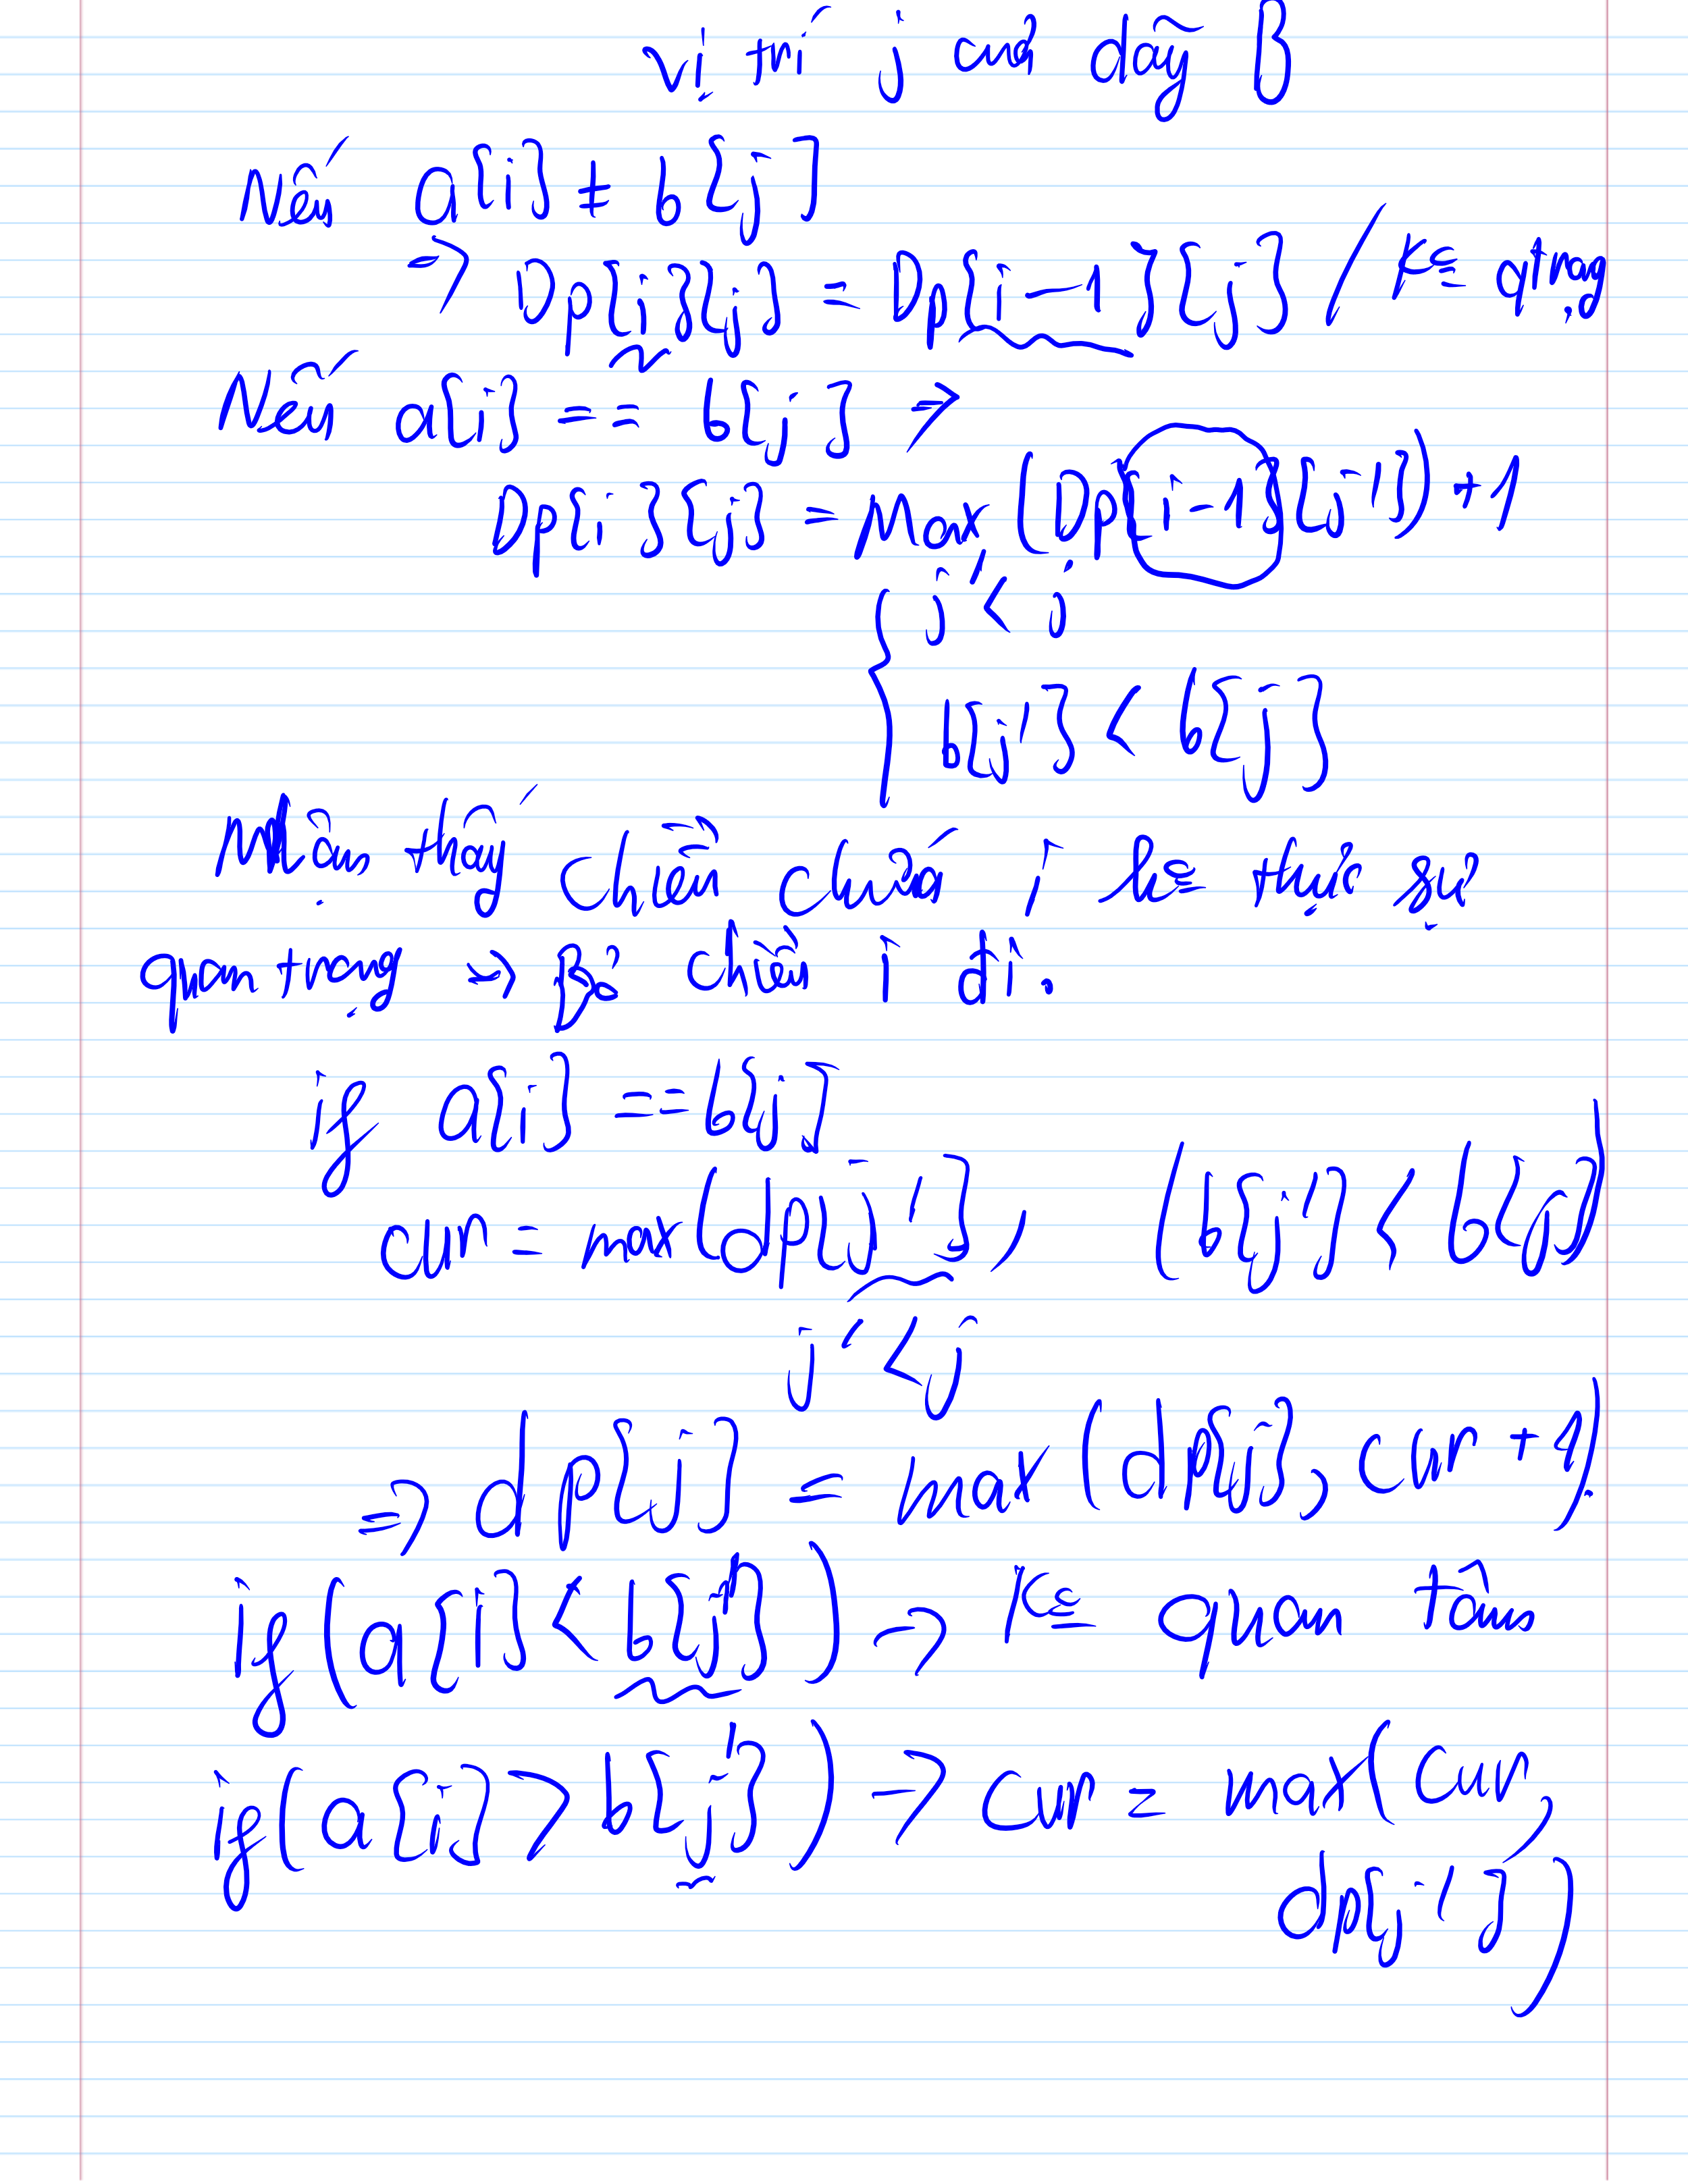 vị trí j của dãy B
Nếu a[i] ≠ b[j]
=> Dp[i][j] = Dp[i-1][j] / K= qtrọng
Nếu a[i] == b[j] =>
Dp[i][j] = Max (Dp[i-1][j']) + 1
j' < j
b[j'] < b[j]
Nhận thấy chiều chứa i k= thực sự
quan trọng => Bỏ chiều i đi.
if a[i] == b[j]
cur = max (dp[j'], (b[j'] < b[j])
j' < j
=> dp[j] = max (dp[j], cur + 1)
if (a[i] < b[j']) -> K= quan tâm
if (a[i] > b[j']) -> cur = max (cur,
dp[j'])